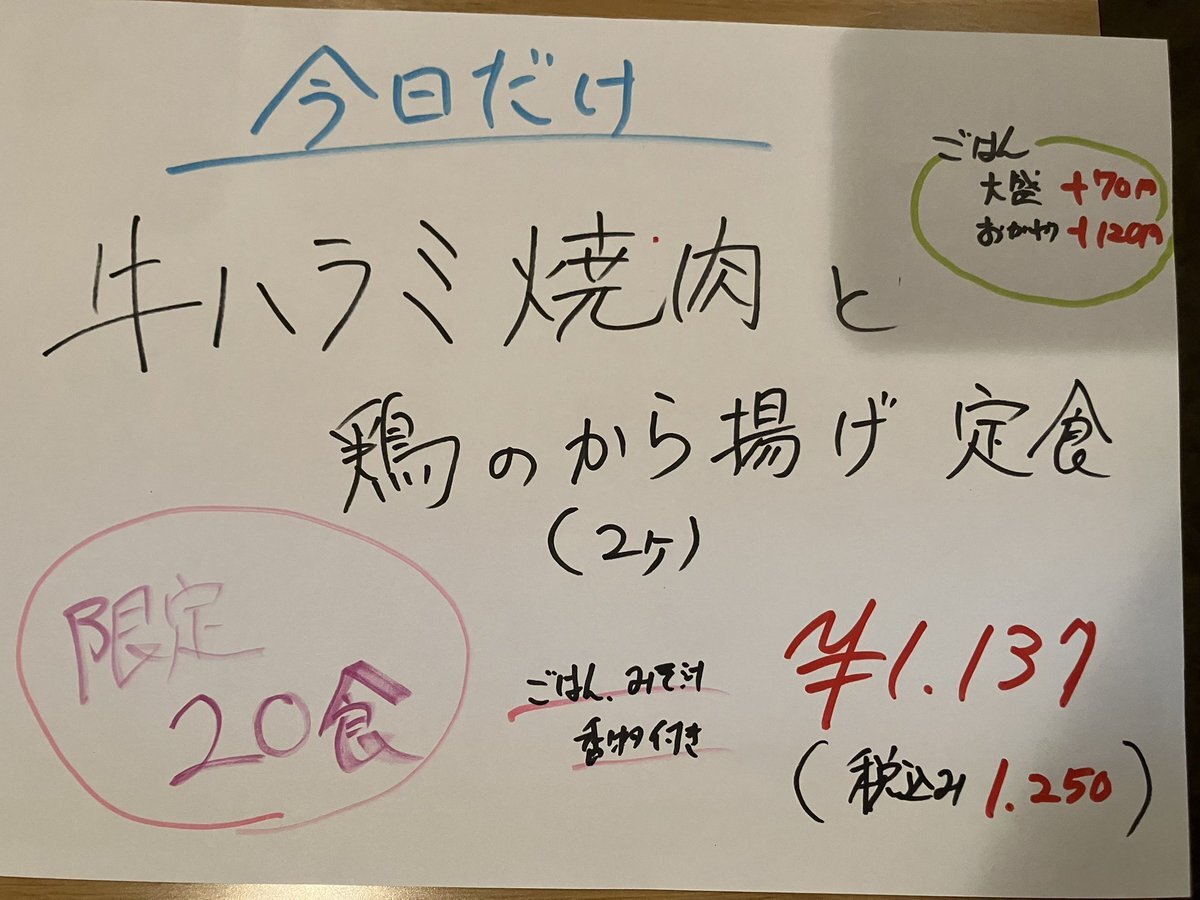 今日だけ
ごはん
大盛 +70円
おかわり +120円
牛ハラミ焼肉と
鶏のから揚げ定食
(2ヶ)
限定
20食
ごはん、みそ汁
香物付き
¥1.137
(税込み 1.250)